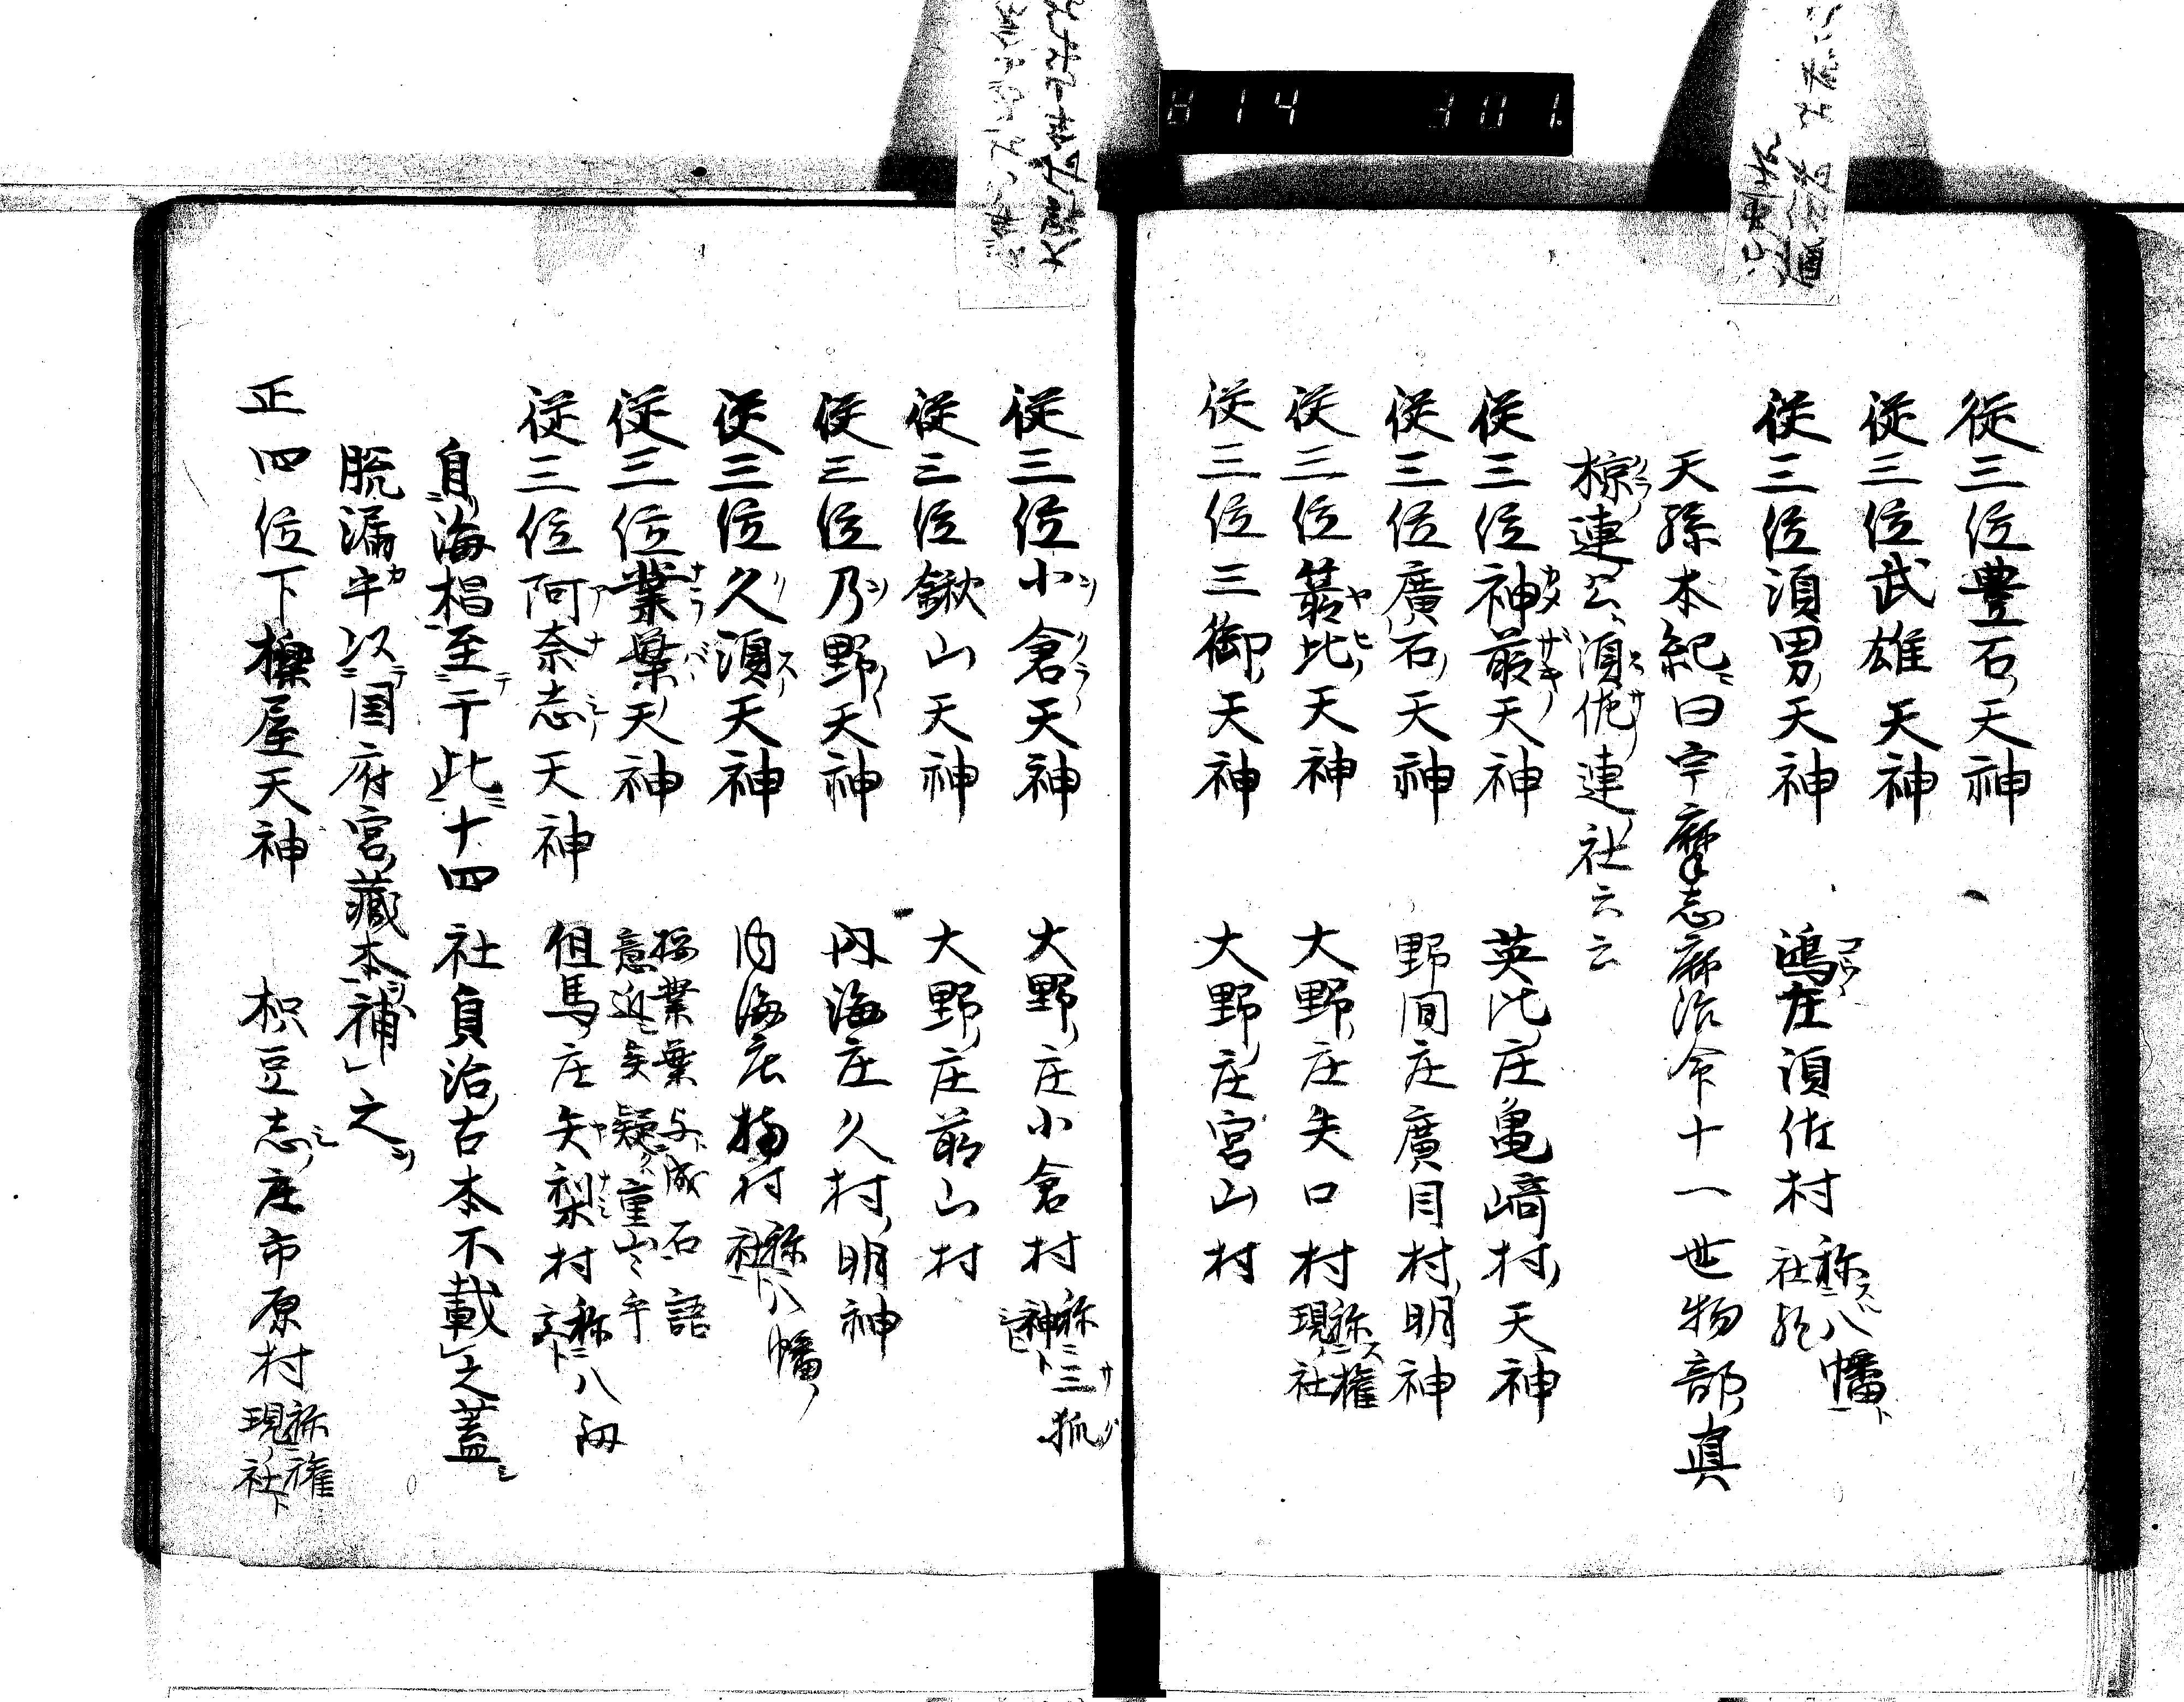 従三位豊石天神
従三位武雄天神
従三位須男天神 鴻庄須佐村 称八幡社
天孫本紀曰宇摩志麻治命十一世物部真
椋連公須佐連社云云
従三位神前天神 英比庄亀﨑村天神
従三位廣石天神 野間庄廣目村明神
従三位箭比天神 大野庄矢口村 称権現社
従三位三御天神 大野庄宮山村
従三位小倉天神 大野庄小倉村 称三狐神
従三位鍬山天神 大野庄前山村
従三位乃野天神 内海庄久村明神
従三位久須天神 内海庄楠村 称八幡社
従三位業葉天神 按業葉与成石語意近矣疑童山乎
従三位阿奈志天神 但馬庄矢梨村 称八
自海椙至于此十四社貞治古本不載之蓋
脱漏乎以国府宮蔵本補之
正四位下標屋天神 枳豆志庄市原村 称権現社
814 301